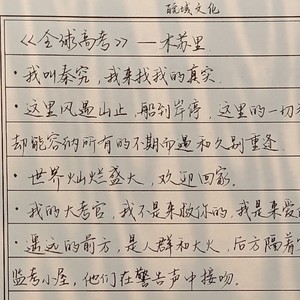 皖域文化
《全球高考》——木苏里
·我叫秦究,我来找我的真实.
·这里风遇山止,船到岸停,这里的一切
却能容纳所有的不期而遇和久别重逢.
·世界灿烂盛大,欢迎回家.
·我的大考官,我不是来救你的,我是来爱
·遥远的前方,是人群和大火,后方隔着
监考小屋,他们在警告声中接吻.